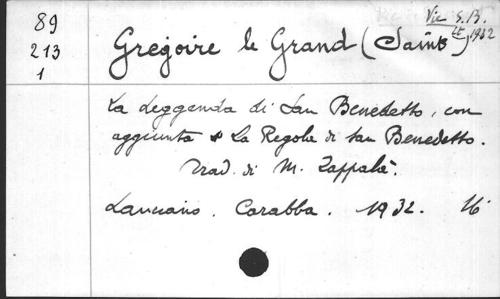 89
213
1
Vie S.B.
Lt 1932
Gregoire le Grand (Saint)
La Leggenda di San Benedetto, con
aggiunta La Regola di San Benedetto.
Trad. di M. Zappalà.
Lanciano. Carabba. 1932. 16°